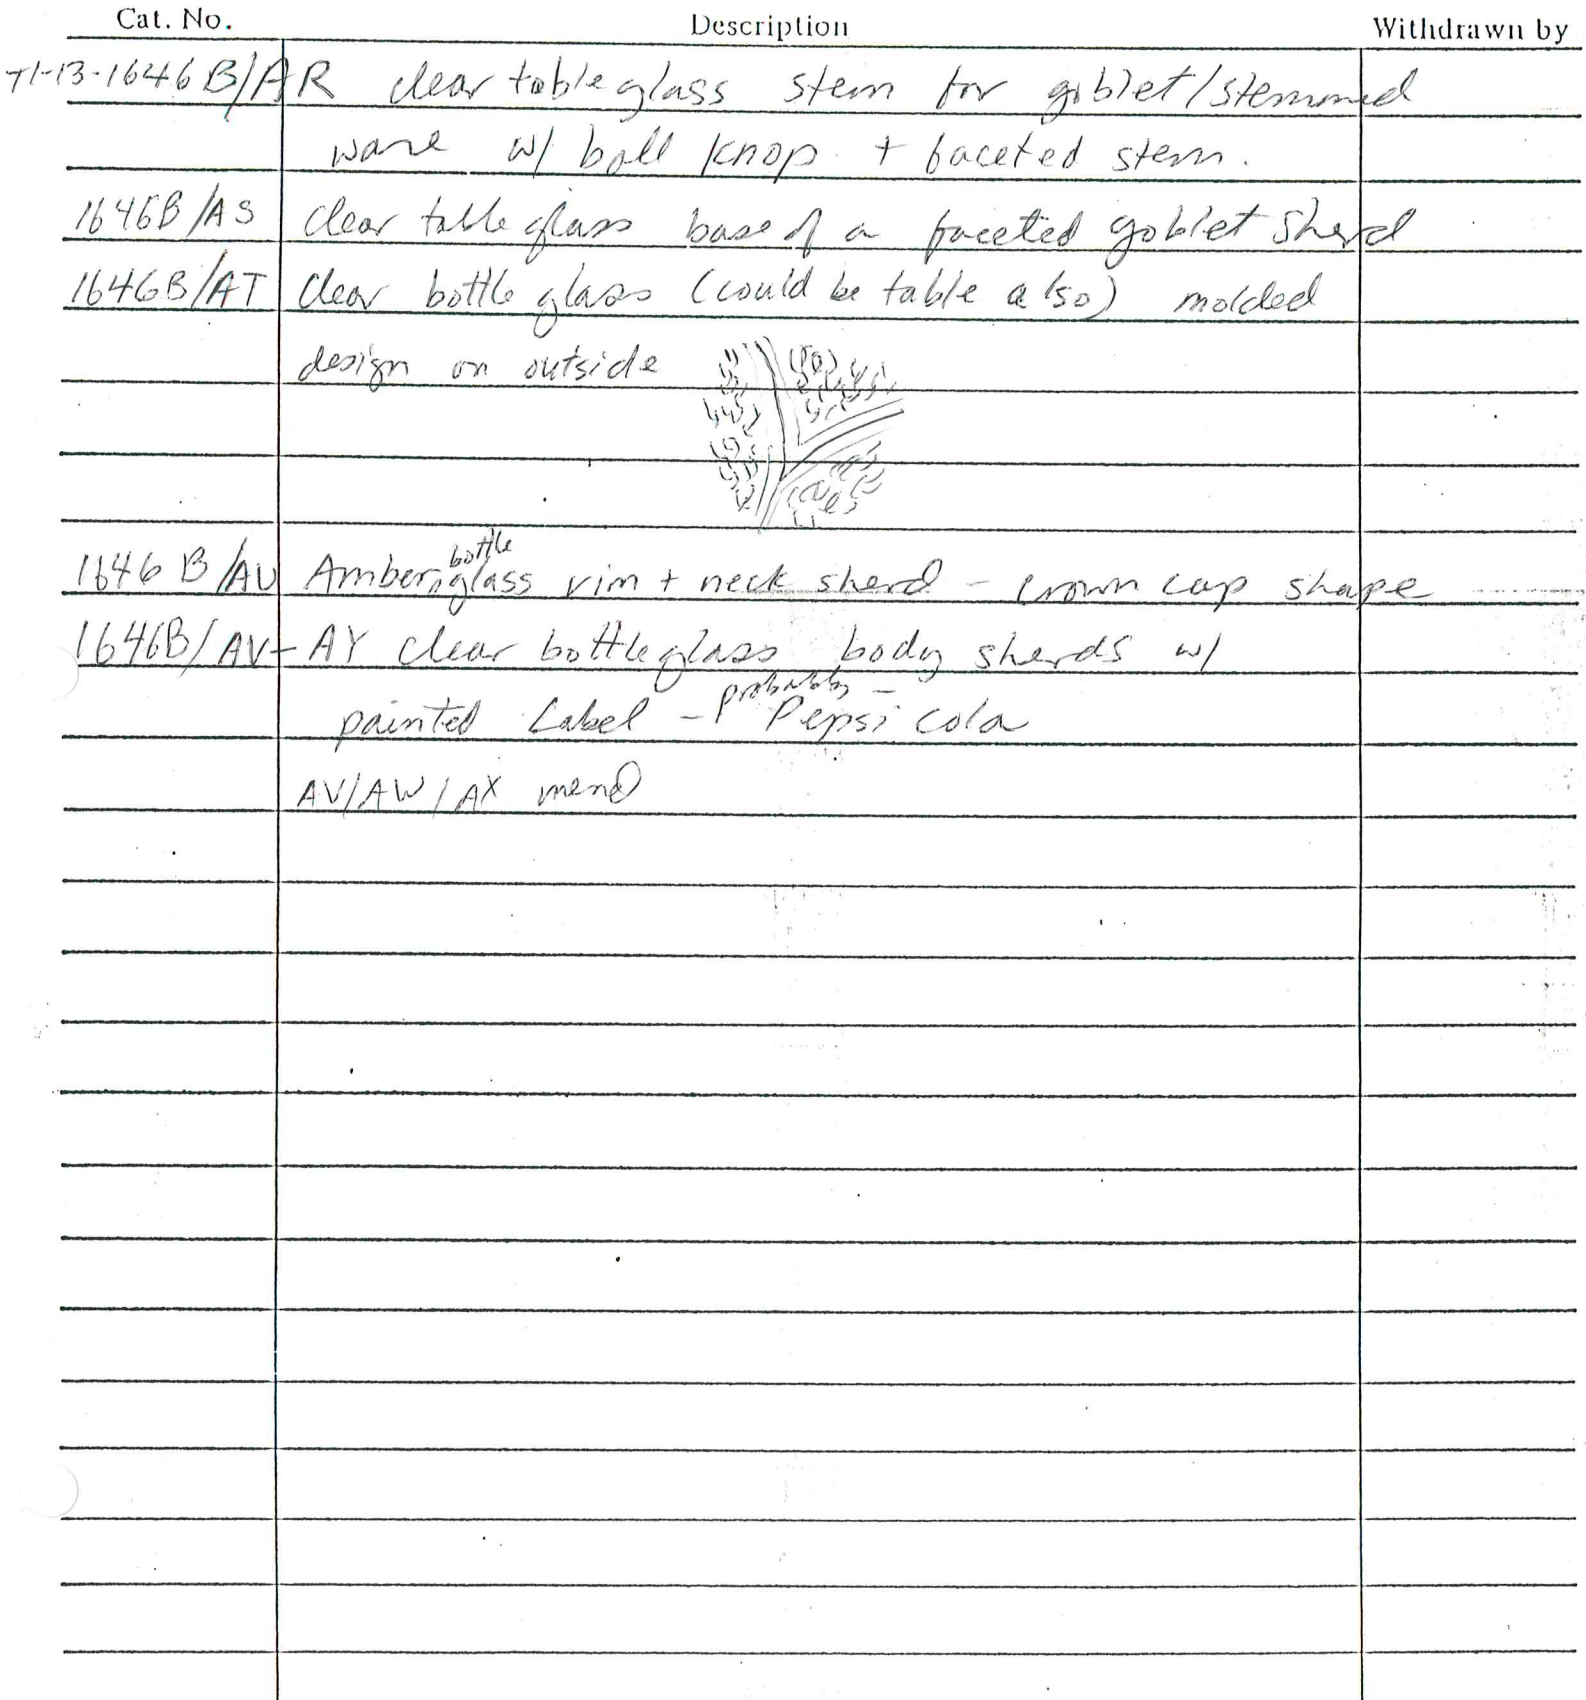 Cat. No. Description Withdrawn by
T1-13-1646B/AR clear table glass stem for goblet/stemmed
ware w/ ball knop + faceted stem.
1646B/AS clear table glass base of a faceted goblet sherd
1646B/AT clear bottle glass (could be table also) molded
design on outside
bottle
1646B/AU Amber glass rim + neck sherd - crown cap shape
1646B/AV-AY clear bottle glass body sherds w/
probably
painted Label - Pepsi cola
AV/AW/AX mend